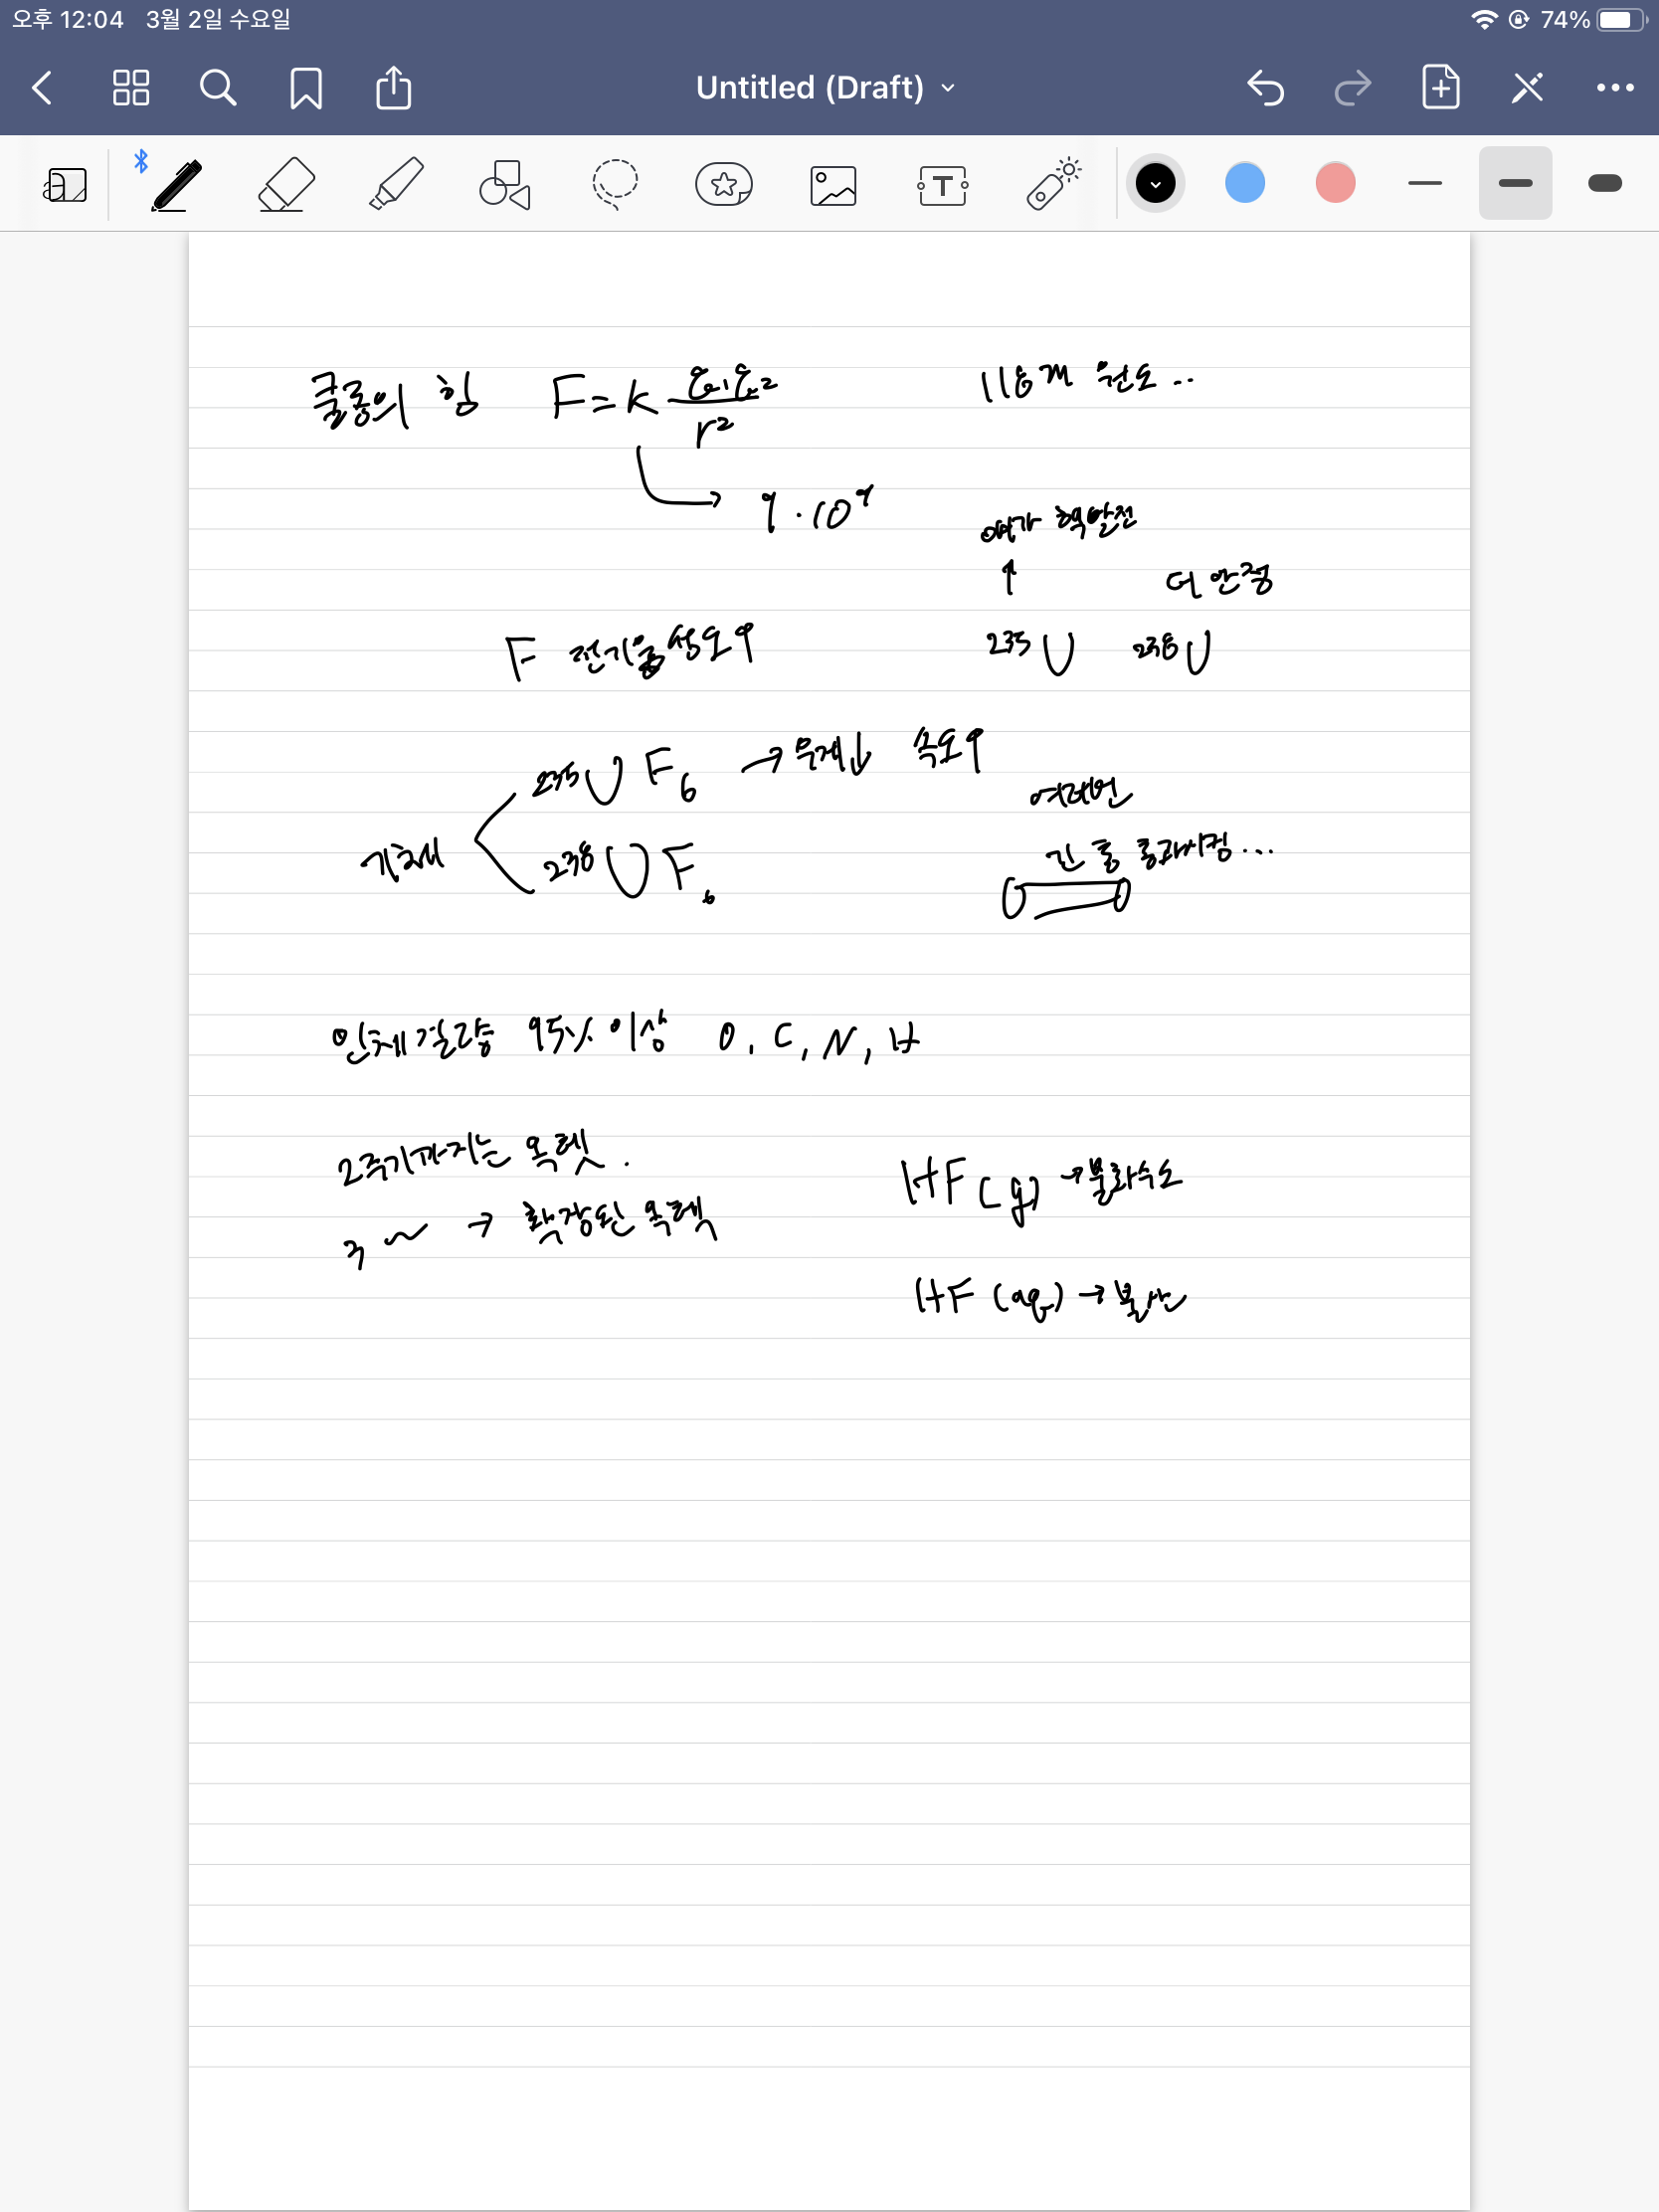 오후 12:04 3월 2일 수요일 74%
Untitled (Draft)
쿨롱의 힘 F=k Q₁Q₂/r² 118개 원소...
9·10⁹
얘가 핵발전
↑ 더 안정
F 전기음성도↑ ²³⁵U ²³⁸U
²³⁵UF₆ → 무게↓ 속도↑
기체 ²³⁸UF₆
여러번
긴 통 통과시킴...
인체질량 95% 이상 O, C, N, H
2주기까지는 옥텟.
3 ~ → 확장된 옥텟
HF(g) → 불화수소
HF(aq) → 불산